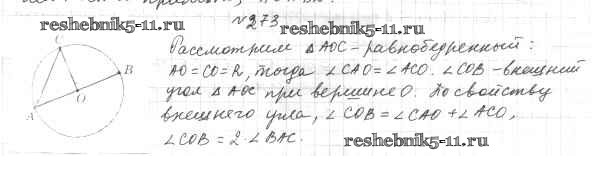 №273
reshebnik5-11.ru
reshebnik5-11.ru
C
B
O
A
Рассмотрим △AOC - равнобедренный:
AO=CO=R, тогда ∠CAO=∠ACO. ∠COB - внешний
угол △AOC при вершине O. По свойству
внешнего угла, ∠COB=∠CAO+∠ACO,
∠COB=2·∠BAC.
reshebnik5-11.ru